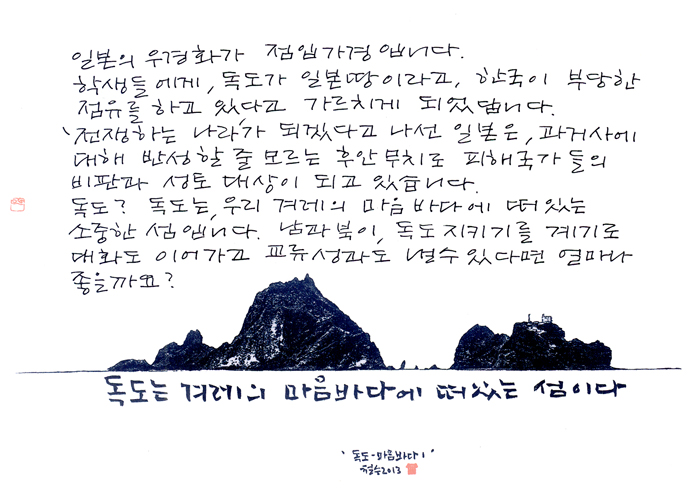 일본의 우경화가 점입가경입니다.
학생들에게, 독도가 일본땅이라고, 한국이 부당한
점유를 하고 있다고 가르치게 되었답니다.
'전쟁하는 나라'가 되겠다고 나선 일본은, 과거사에
대해 반성할 줄 모르는 후안무치로 피해국가들의
비판과 성토 대상이 되고 있습니다.
독도? 독도는, 우리 겨레의 마음바다에 떠있는
소중한 섬입니다. 남과 북이, 독도 지키기를 계기로
대화도 이어가고 교류성과도 낼수 있다면 얼마나
좋을까요?
독도는 겨레의 마음바다에 떠있는 섬이다
'독도-마음바다'
철수2013